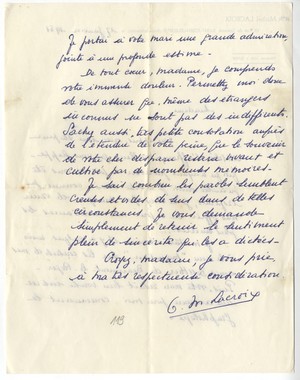 Je portais à votre mari une grande admiration,
jointe à une profonde estime.
De tout cœur, madame, je comprends
votre immense douleur. Permettez-moi donc
de vous assurer que, même des étrangers
inconnus ne sont pas des indifférents.
Sachez aussi, très petite consolation auprès
de l'étendue de votre peine, que le souvenir
de votre cher disparu restera vivant et
cultivé par de nombreuses mémoires.
Je sais combien les paroles semblent
creuses et vides de sens dans de telles
circonstances. Je vous demande
simplement de retenir le sentiment
plein de sincérité qui les a dictées.
Croyez, madame, je vous prie,
à ma très respectueuse considération
G. M. Lacroix
113